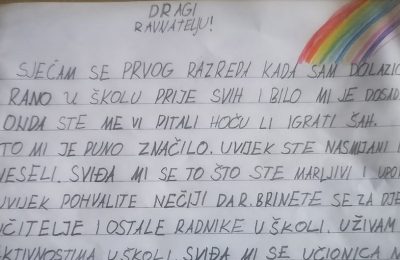 DRAGI
RAVNATELJU!
SJEĆAM SE PRVOG RAZREDA KADA SAM DOLAZIO
RANO U ŠKOLU PRIJE SVIH I BILO MI JE DOSAD
ONDA STE ME VI PITALI HOĆU LI IGRATI ŠAH.
TO MI JE PUNO ZNAČILO. UVIJEK STE NASMJANI I
VESELI. SVIĐA MI SE TO ŠTO STE MARLJIVI I UPO
UVIJEK POHVALITE NEČIJI DAR. BRINETE SE ZA DJE
UČITELJE I OSTALE RADNIKE U ŠKOLI. UŽIVAM
AKTIVNOSTIMA U ŠKOLI. SVIĐA MI SE UČIONICA N